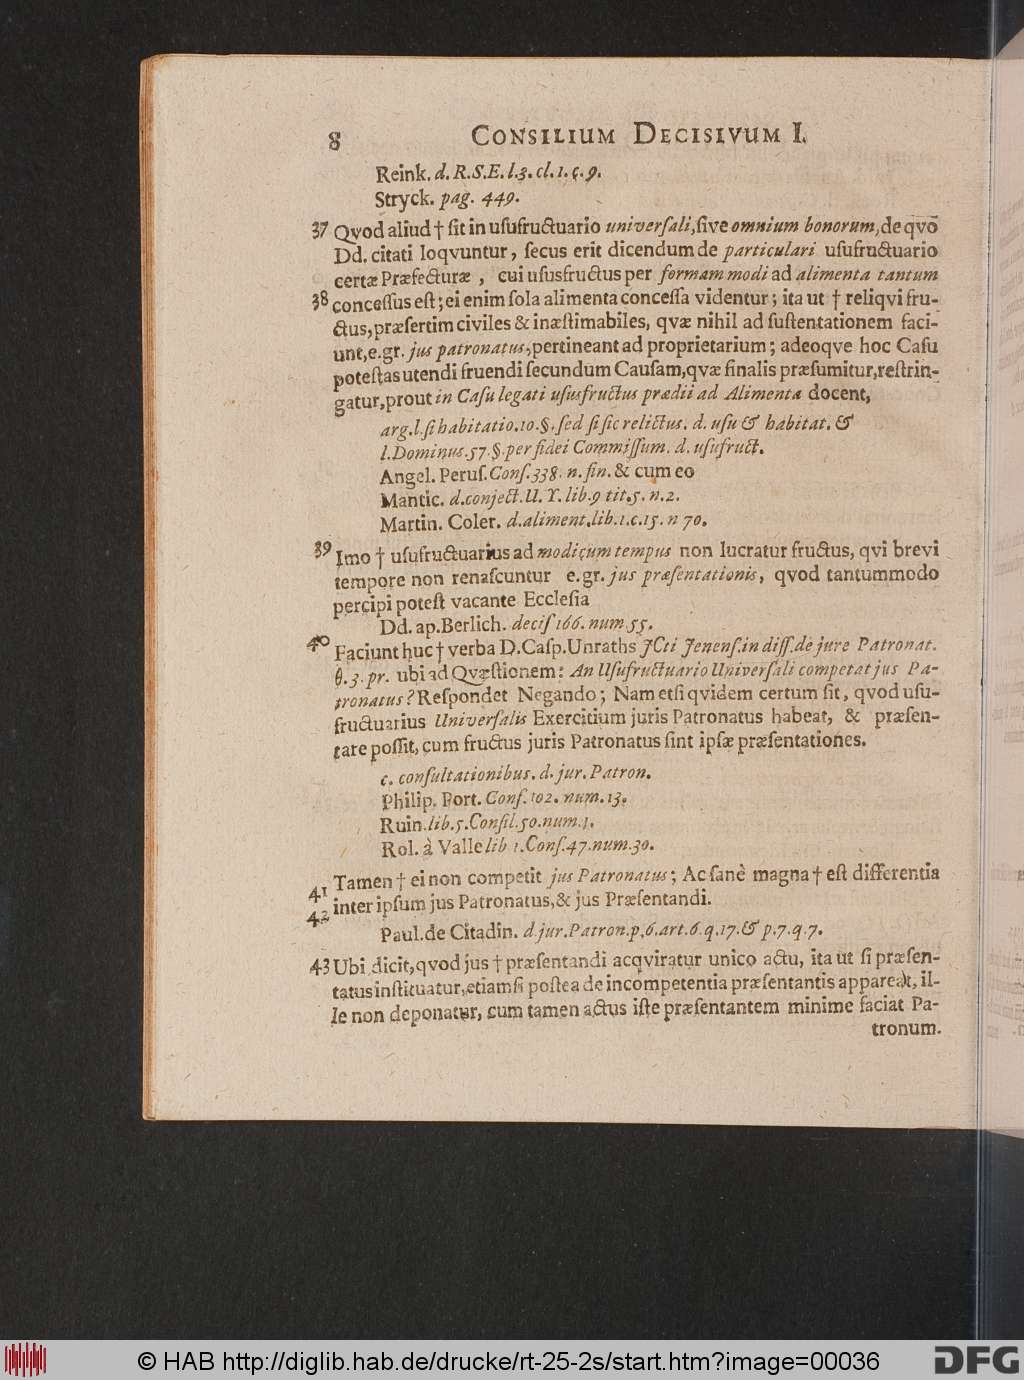 8 CONSILIUM DECISIVUM I.
Reink. d. R.S.E. l.3. cl. 1. ç. 9.
Stryck. pag. 449.
37 Qvod aliud † ſit in uſufructuario univerſali, ſive omnium bonorum, de qvō
Dd. citati loqvuntur, ſecus erit dicendum de particulari uſufructuario
certæ Præfecturæ , cui uſusfructus per formam modi ad alimenta tantum
38 conceſſus eſt; ei enim ſola alimenta conceſſa videntur; ita ut † reliqvi fru-
ctus, præſertim civiles & inæſtimabiles, qvæ nihil ad ſuſtentationem faci-
unt, e. gr. jus patronatus, pertineant ad proprietarium; adeoqve hoc Caſu
poteſtas utendi fruendi ſecundum Cauſam, qvæ finalis præſumitur, reſtrin-
gatur, prout in Caſu legati uſusfructus prædii ad Alimenta docent,
arg. l. ſi habitatio. 10. §. ſed ſi ſic relictus. d. uſu & habitat. &
l. Dominus. 57. §. per fidei Commiſſum. d. uſufruct.
Angel. Peruſ. Conſ. 338. n. fin. & cum eo
Mantic. d. conject. U. V. lib. 9 tit. 5. n. 2.
Martin. Coler. d. aliment. lib. 1. c. 15. n 70.
39 Imo † uſufructuarius ad modiçum tempus non lucratur fructus, qvi brevi
tempore non renaſcuntur e. gr. jus præſentationis, qvod tantummodo
percipi poteſt vacante Eccleſia
Dd. ap. Berlich. deciſ 166. num 55.
40 Faciunt huc † verba D. Caſp. Unraths JCti Jenenſ. in diſſ. de jure Patronat.
§. 3. pr. ubi ad Qvæſtionem: An Uſufructuario Univerſali competat jus Pa-
tronatus? Reſpondet Negando; Nam etſi qvidem certum ſit, qvod uſu-
fructuarius Univerſalis Exercitium juris Patronatus habeat, & præſen-
tare poſſit, cum fructus juris Patronatus ſint ipſæ præſentationes.
c. conſultationibus. d. jur. Patron.
Philip. Port. Conſ. 102. num. 13.
Ruin. lib. 5. Conſil. 50. num. 1.
Rol. à Valle lib 1. Conſ. 47. num. 30.
41 Tamen † ei non competit jus Patronatus; Ac ſanè magna † eſt differentia
42 inter ipſum jus Patronatus, & jus Præſentandi.
Paul. de Citadin. d. jur. Patron. p. 6. art. 6. q. 17. & p. 7. q. 7.
43 Ubi dicit, qvod jus † præſentandi acqviratur unico actu, ita ut ſi præſen-
tatus inſtituatur, etiamſi poſtea de incompetentia præſentantis appareat, il-
le non deponatur, cum tamen actus iſte præſentantem minime faciat Pa-
tronum.
© HAB http://diglib.hab.de/drucke/rt-25-2s/start.htm?image=00036
DFG